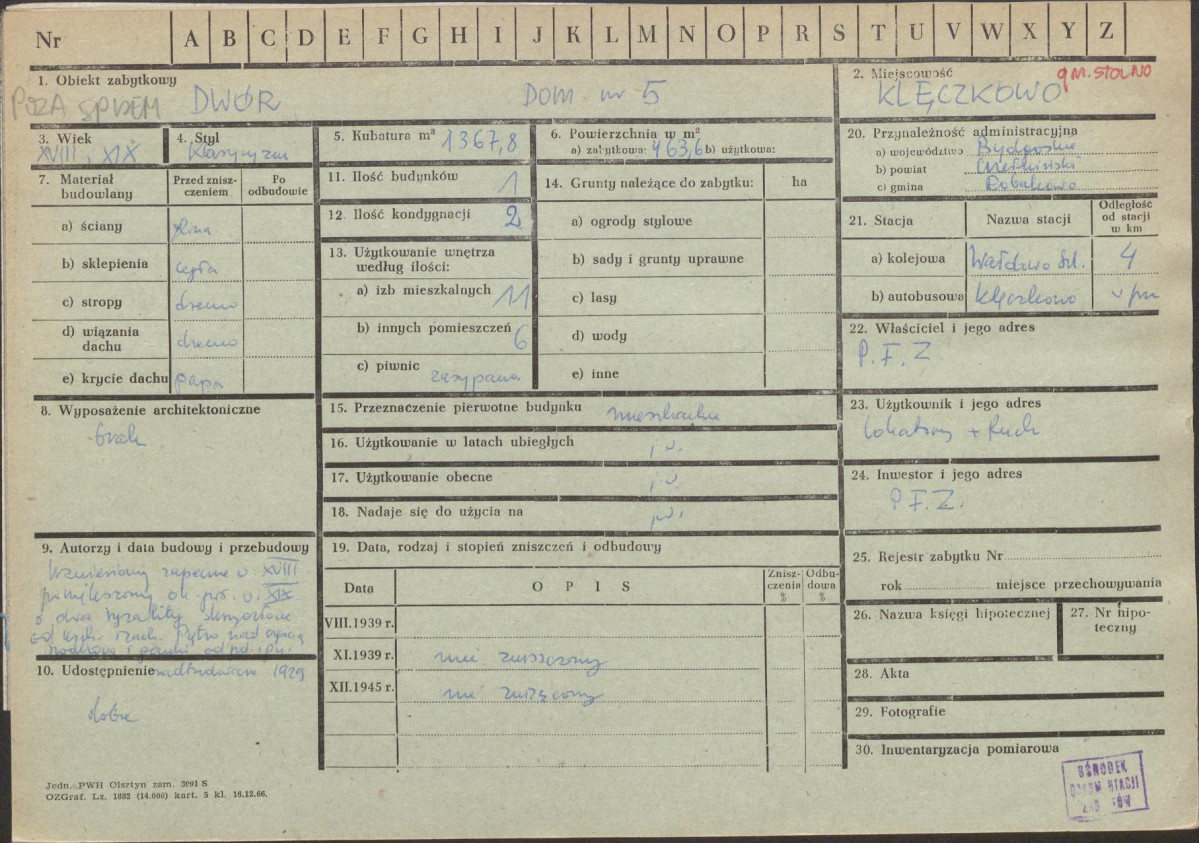 Nr A B C D E F G H I J K L M N O P R S T U V W X Y Z
1. Obiekt zabytkowy
POZA SPISEM DWÓR DOM nr 5
2. Miejscowość gm. STOLNO
KLĘCZKOWO
3. Wiek
XVIII, XIX
4. Styl
Klasycyzm
5. Kubatura m³ 1367,8
6. Powierzchnia w m²
a) zabytkowa: 463,6 b) użytkowa:
7. Materiał budowlany
Przed zniszczeniem
Po odbudowie
a) ściany glina
b) sklepienia cegła
c) stropy drewno
d) wiązania dachu drewno
e) krycie dachu papa
8. Wyposażenie architektoniczne
brak
9. Autorzy i data budowy i przebudowy
Wzniesiony zapewne w XVIII
powiększony ok. poł. w. XIX
o dwa ryzality skrzydłowe
od wsch. i zach. Piętro nad częścią
środkową i ganki od pd. i pn.
10. Udostępnienie nadbudowano 1929
dobre
11. Ilość budynków 1
12. Ilość kondygnacji 2
13. Użytkowanie wnętrza
według ilości:
a) izb mieszkalnych 11
b) innych pomieszczeń 6
c) piwnic zasypana
14. Grunty należące do zabytku: ha
a) ogrody stylowe
b) sady i grunty uprawne
c) lasy
d) wody
e) inne
15. Przeznaczenie pierwotne budynku mieszkalne
16. Użytkowanie w latach ubiegłych j.w.
17. Użytkowanie obecne j.w.
18. Nadaje się do użycia na j.w.
19. Data, rodzaj i stopień zniszczeń i odbudowy
Data
O P I S
Zniszczenia %
Odbudowa %
VIII.1939 r.
XI.1939 r. nie zniszczony
XII.1945 r. nie zniszczony
20. Przynależność administracyjna
a) województwo Bydgoskie
b) powiat Chełmiński
c) gmina Robakowo
21. Stacja
Nazwa stacji
Odległość od stacji w km
a) kolejowa Wałdowo Szl. 4
b) autobusowa Klęczkowo
22. Właściciel i jego adres
P. F. Z.
23. Użytkownik i jego adres
lokatorzy + Ruch
24. Inwestor i jego adres
P. F. Z.
25. Rejestr zabytku Nr
rok miejsce przechowywania
26. Nazwa księgi hipotecznej
27. Nr hipoteczny
28. Akta
29. Fotografie
30. Inwentaryzacja pomiarowa
OŚRODEK
DOKUMENTACJI
ZABYTKÓW
Jedn. PWH Olsztyn zam. 3991 S
OZGraf. Lz. 1882 (14.000) kart. 5 kl. 16.12.66.